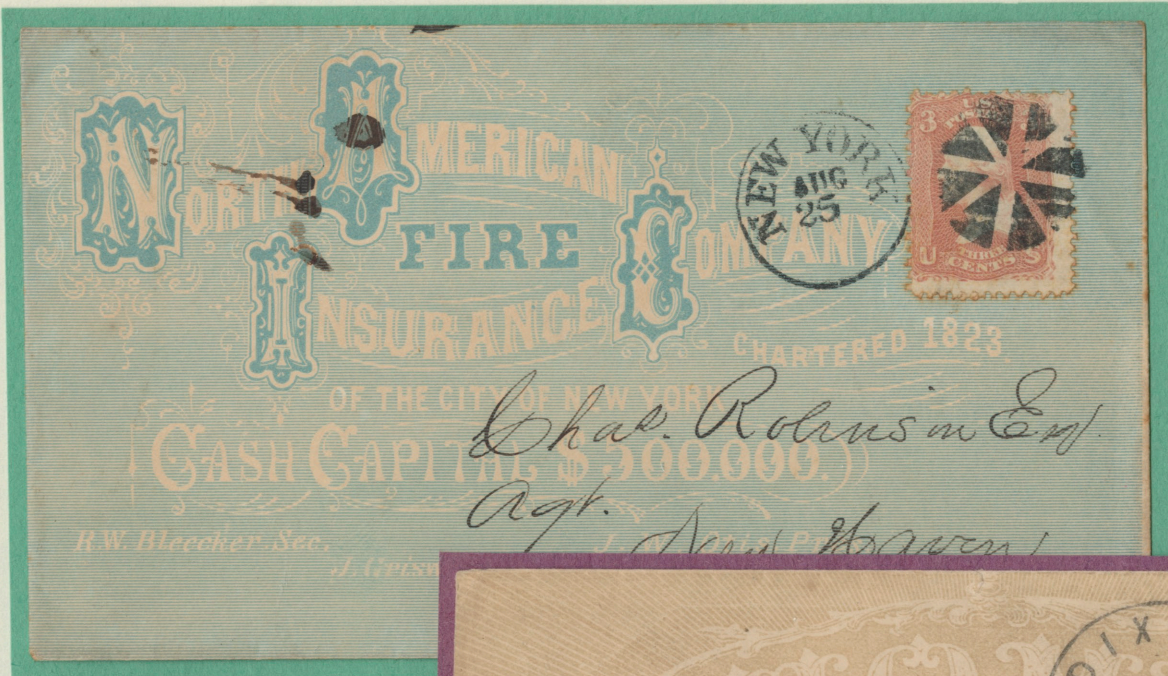 NORTH AMERICAN
FIRE
INSURANCE COMPANY
CHARTERED 1823
OF THE CITY OF NEW YORK
CASH CAPITAL $500.000.
R.W. Bleecker Sec.
NEW YORK
AUG
25
3
U.S.
POSTAGE
U S
THREE
CENTS
Chas. Robinson Esq.
Agt.
New Haven